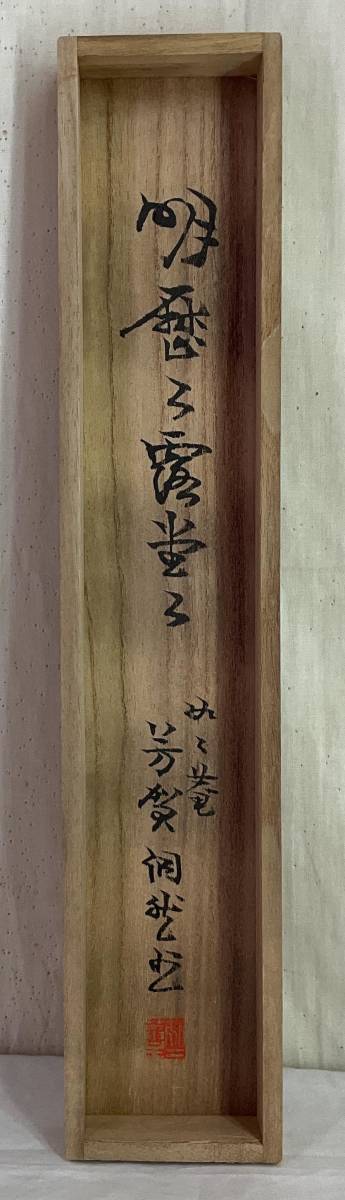 明歴々露堂々
如々庵
芳賀洞然書